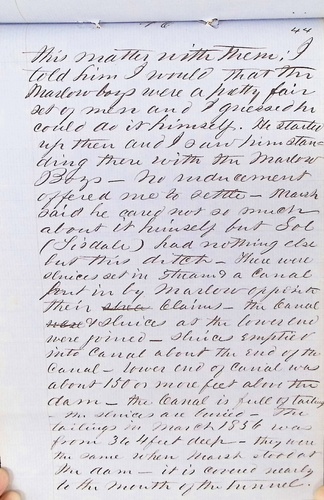 44
this matter with them; I
told him I would that the
Marlow boys were a pretty fair
set of men and I guessed he
could do it himself. He started
up then and I saw him stan-
ding there with the Marlow
Boys — No inducement
offered me to settle — Marsh
said he cared not so much
about it himself but Sol
(Tisdale) had nothing else
but this ditch — There were
sluices set in Stream & a Canal
put in by Marlow opposite
their claims — the Canal
& sluices at the lower end
were joined — sluices emptied
into Canal about the end of the
Canal — lower end of Canal was
about 150 or more feet above the
dam — the Canal is full of tailings
— the sluices are buried — The
tailings in March 1856 was
from 3 to 4 feet deep — they were
the same when Marsh stood at
the dam — it is covered nearly
to the mouth of the tunnel.